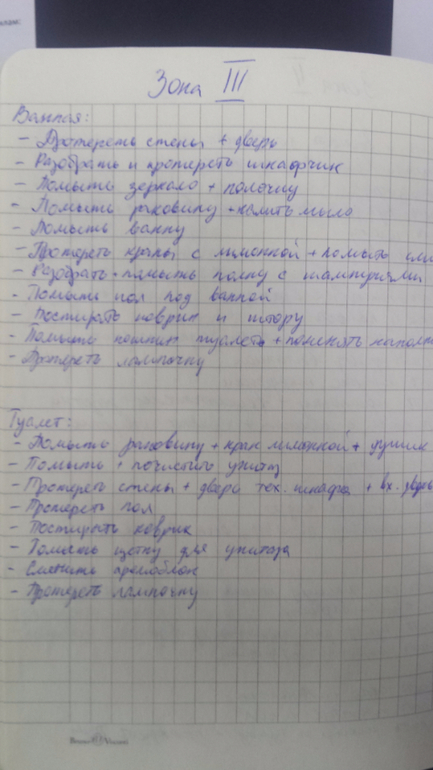 Зона III
Ванная:
- Протереть стены + дверь
- Разобрать и протереть шкафчик
- Помыть зеркало + полочку
- Помыть раковину + налить мыло
- Помыть ванну
- Протереть краны с лимонкой + помыть
- Разобрать + помыть полку с шампунями
- Помыть пол под ванной
- Постирать коврик и штору
- Помыть кошкин туалет + поменять наполн
- Протереть лампочку
Туалет:
- Помыть раковину + кран лимонкой +
- Помыть + почистить унитаз
- Протереть стены + двери тех. шкафа + вх. дверь
- Протереть пол
- Постирать коврик
- Помыть щётку для унитаза
- Сменить
- Протереть лампочку
Bruno Visconti